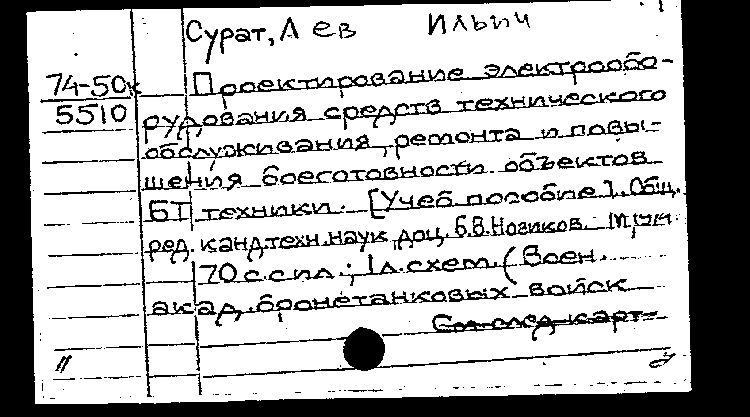 Сурат, Лев Ильич
74-50к Проектирование электрообо-
5510 рудования средств технического
обслуживания, ремонта и повы-
шения боеготовности объектов
БТ техники. [Учеб пособие]. Общ.
ред. канд. техн. наук, доц. Б.В. Новиков.
70 с. с ил.; 1 л. схем. (Воен.
акад. бронетанковых войск
См след карт